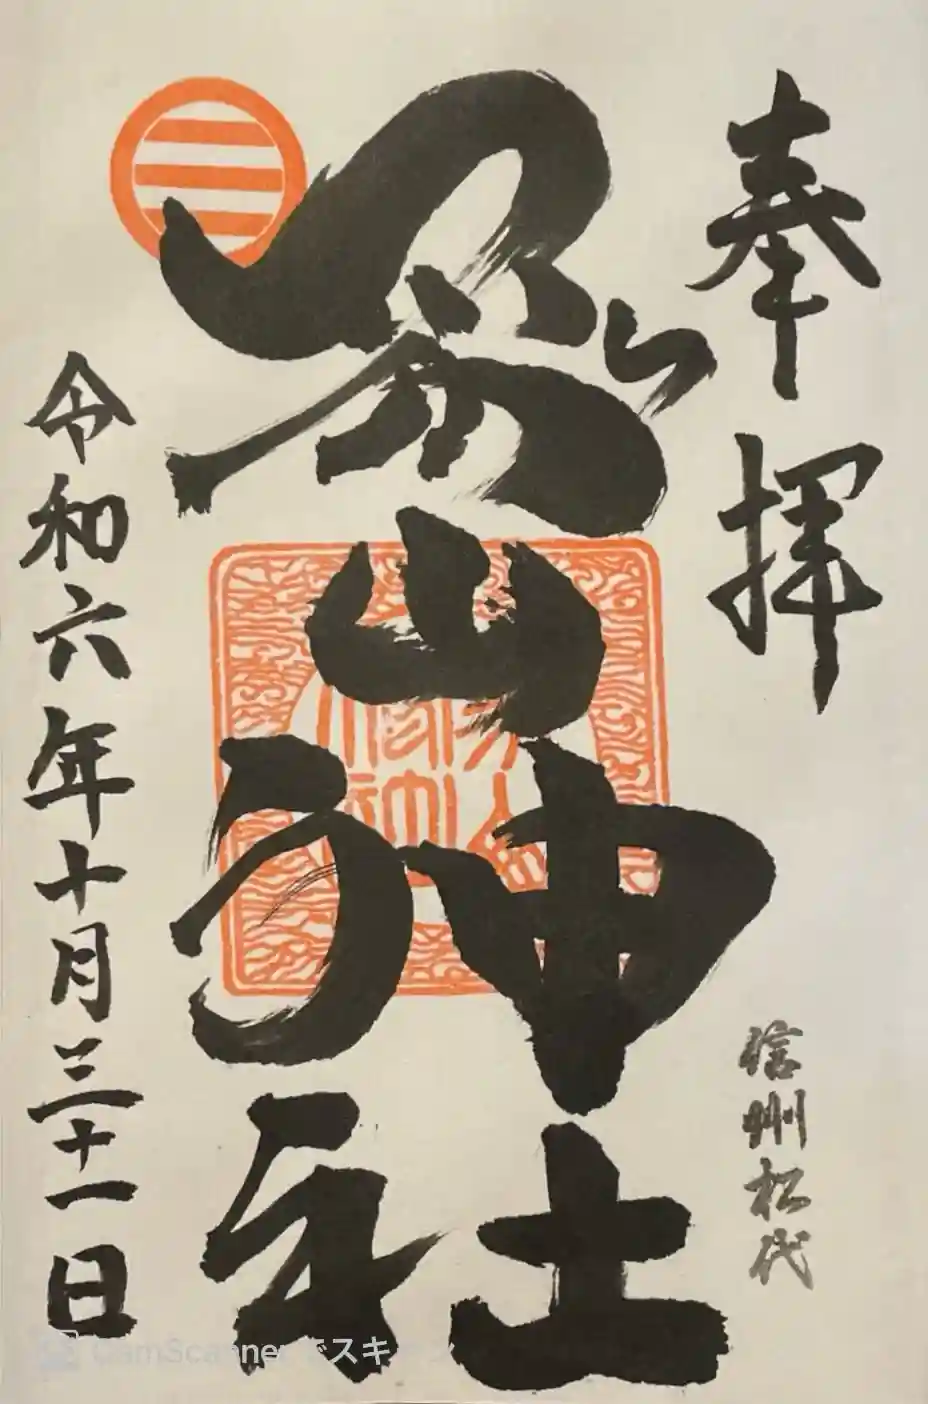 奉拝
信州松代
象山神社
令和六年十月三十一日
CamScannerでスキャン